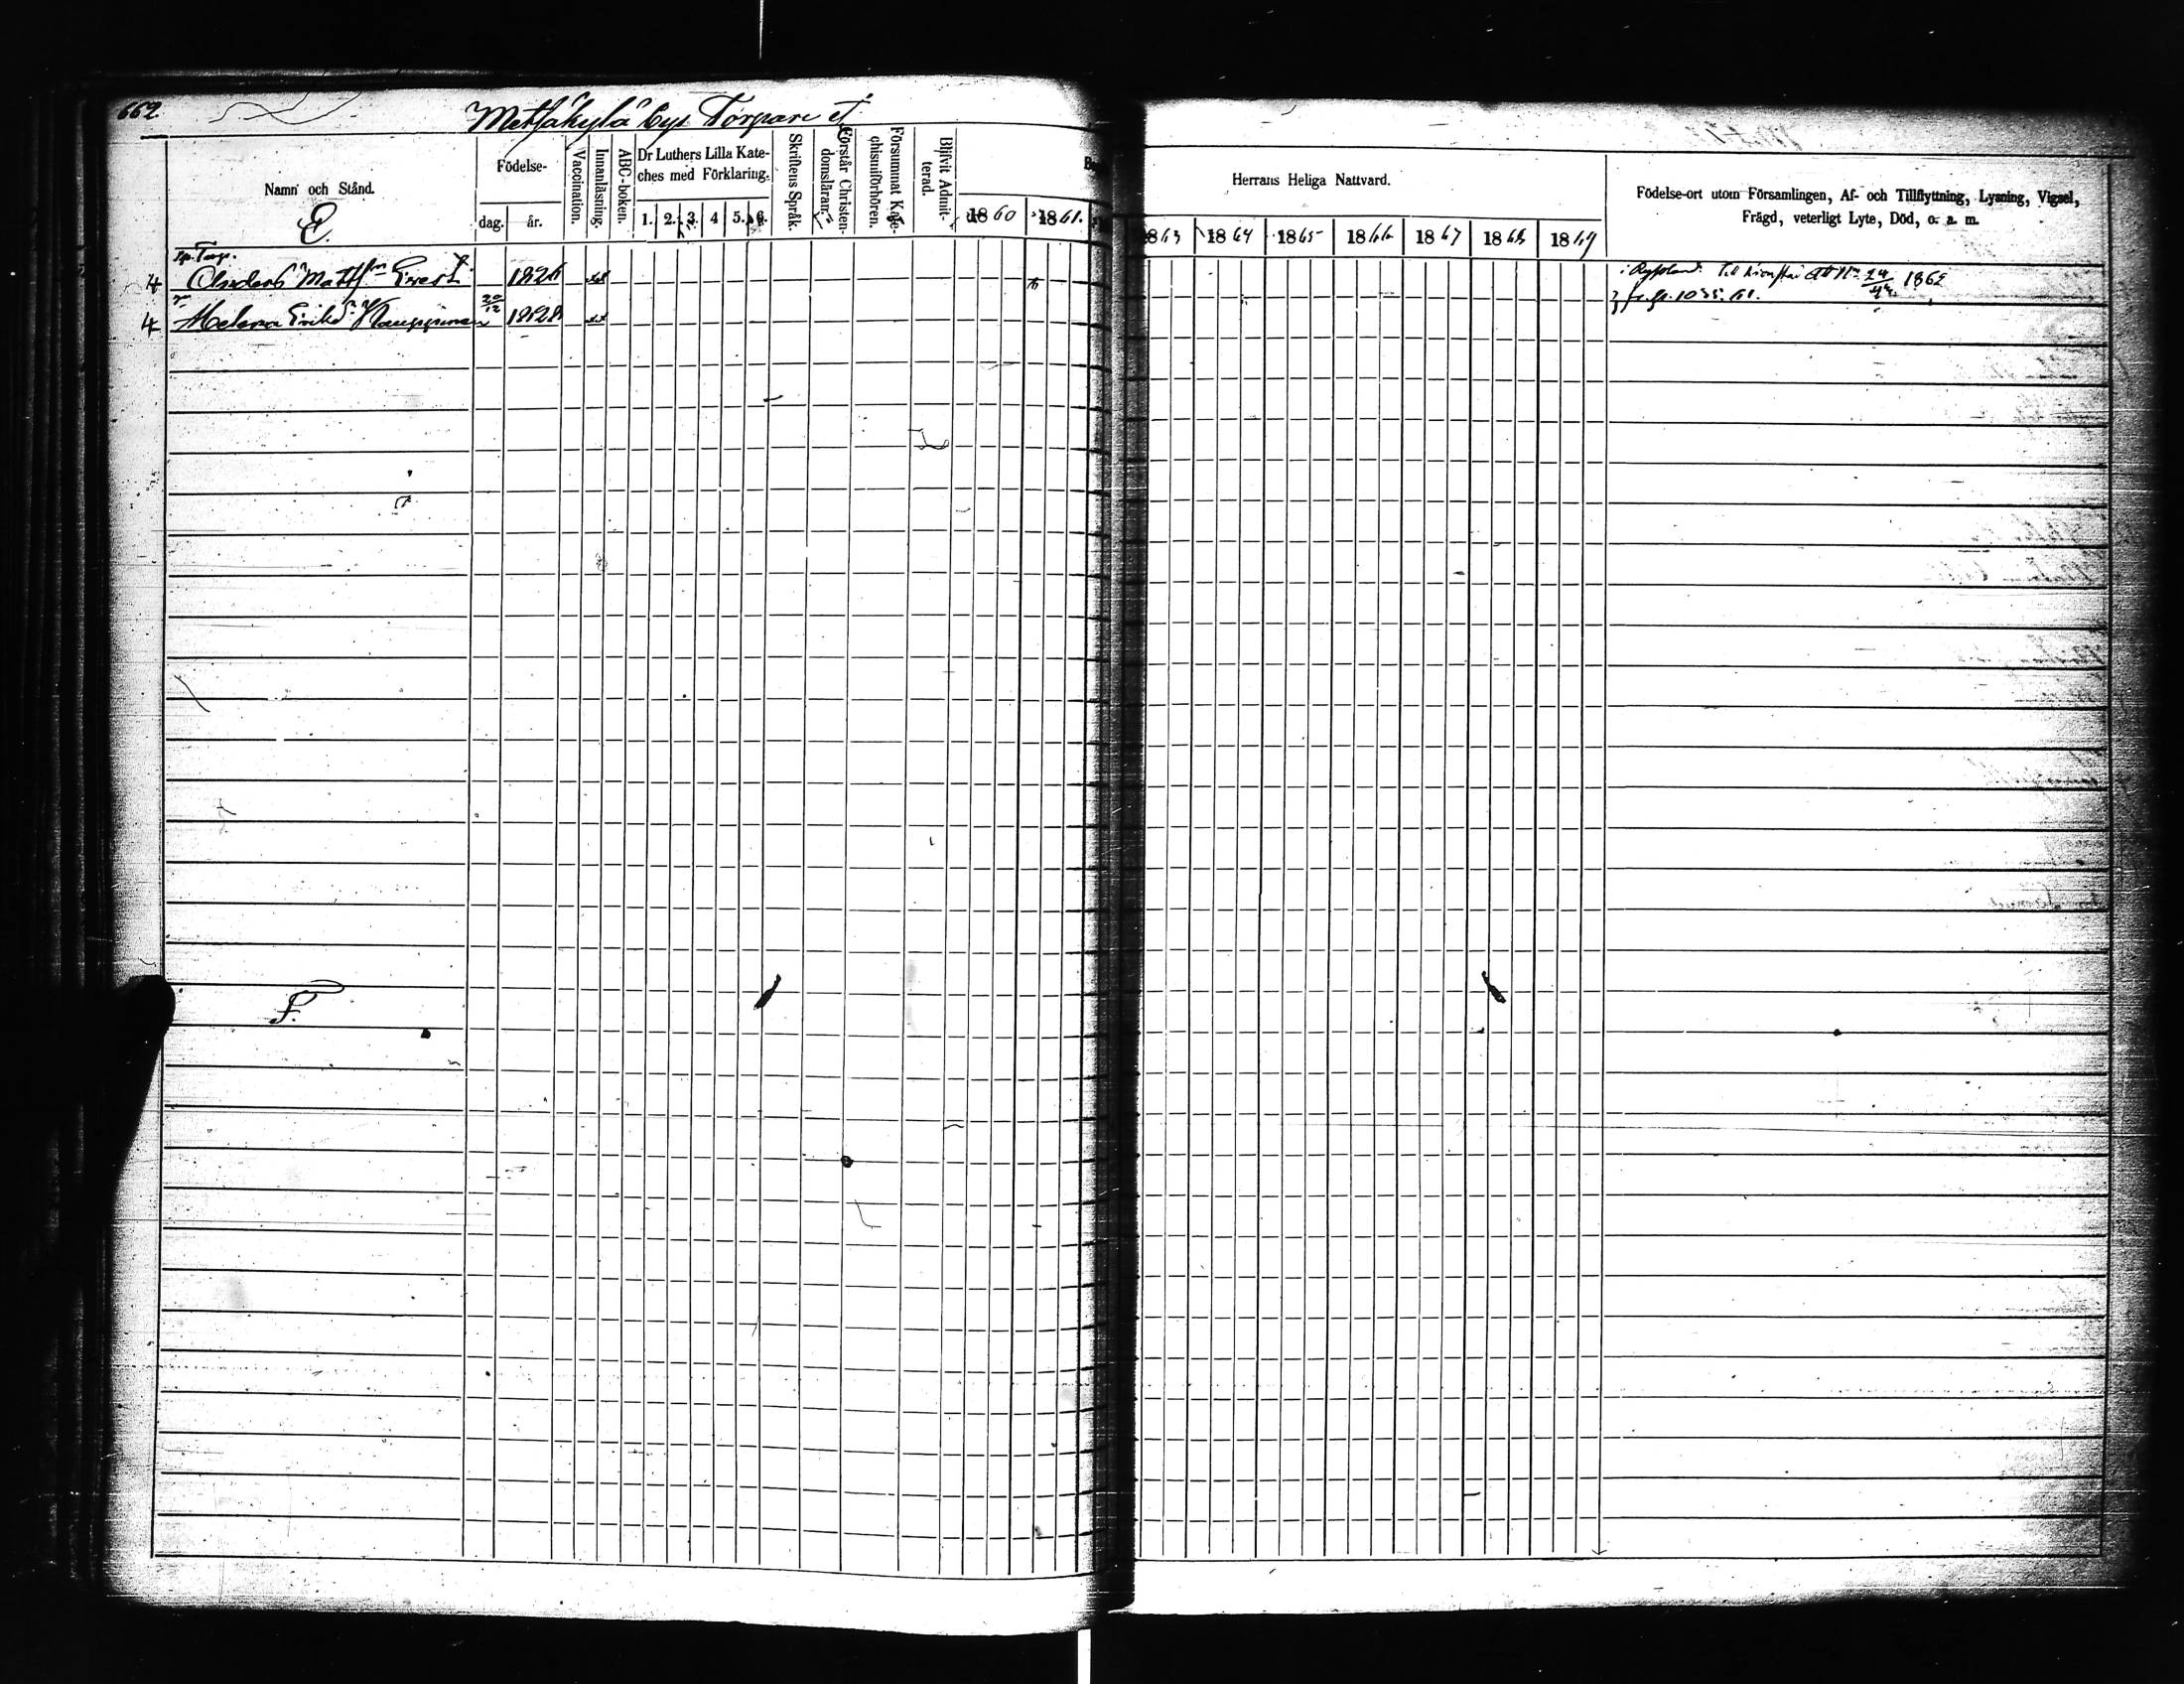 662
Metsäkylä bys Torpare et
Namn och Stånd.
Födelse-
dag. år.
Vaccination.
Innanläsning.
ABC-boken.
Dr Luthers Lilla Kate-
ches med Förklaring.
1. 2. 3. 4 5. 6.
Skriftens Språk.
Förstår Christen-
domsläran.
Försummat Kate-
chismiförhören.
Blifvit Admit-
terad.
1860 1861.
Herrans Heliga Nattvard.
1863 1864 1865 1866 1867 1868 1869
Födelse-ort utom Församlingen, Af- och Tillflyttning, Lysning, Vigsel,
Frägd, veterligt Lyte, Död, o. a. m.
E.
Sp. Torp.
4 Anders Matts 1826 i Ryssland. Till 24 1862
4 Helena Kauppinen 20/12 1828 1035. 61.
F.